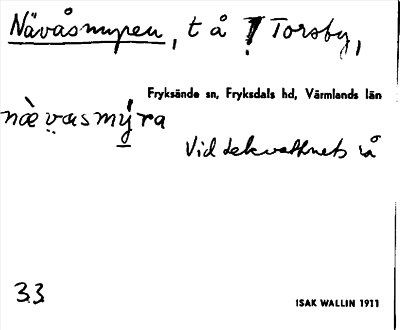 Nävåsmyren, t å Torsby,
Fryksände sn, Fryksdals hd, Värmlands län
nævasmýra
Vid Lekvattnets å
33
ISAK WALLIN 1911